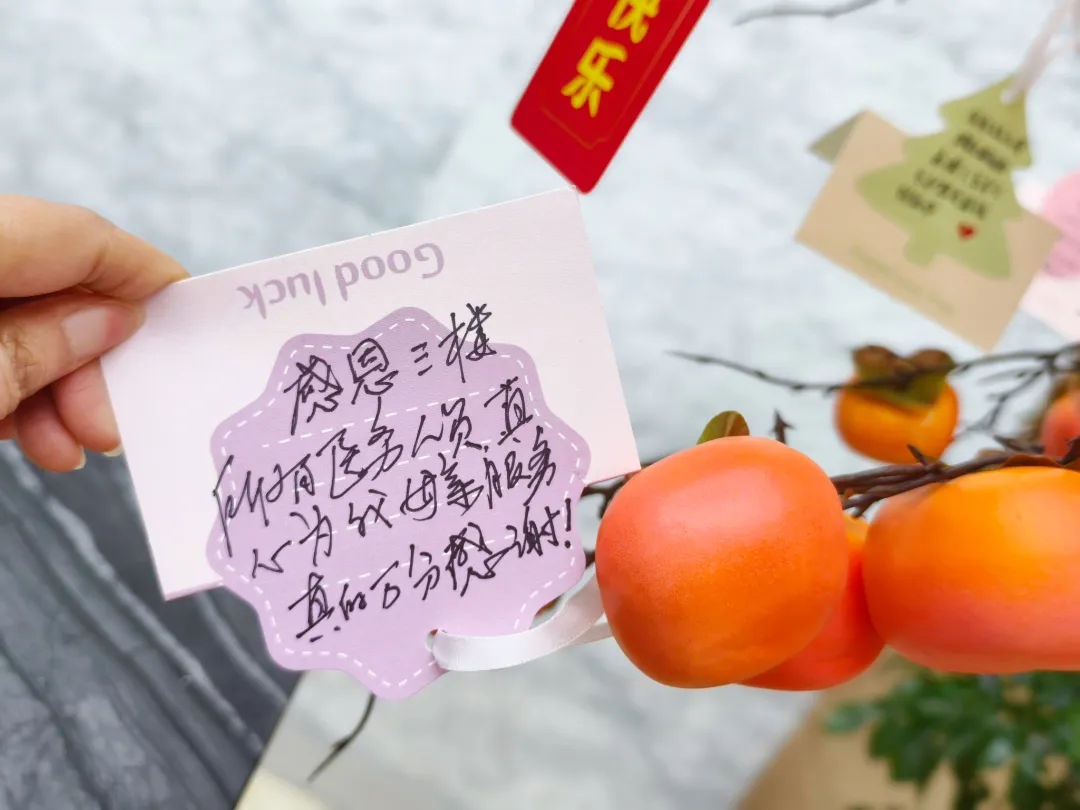 乐
Good luck
感恩三楼
所有医务人员真
心为我母亲服务
真的万分感谢!